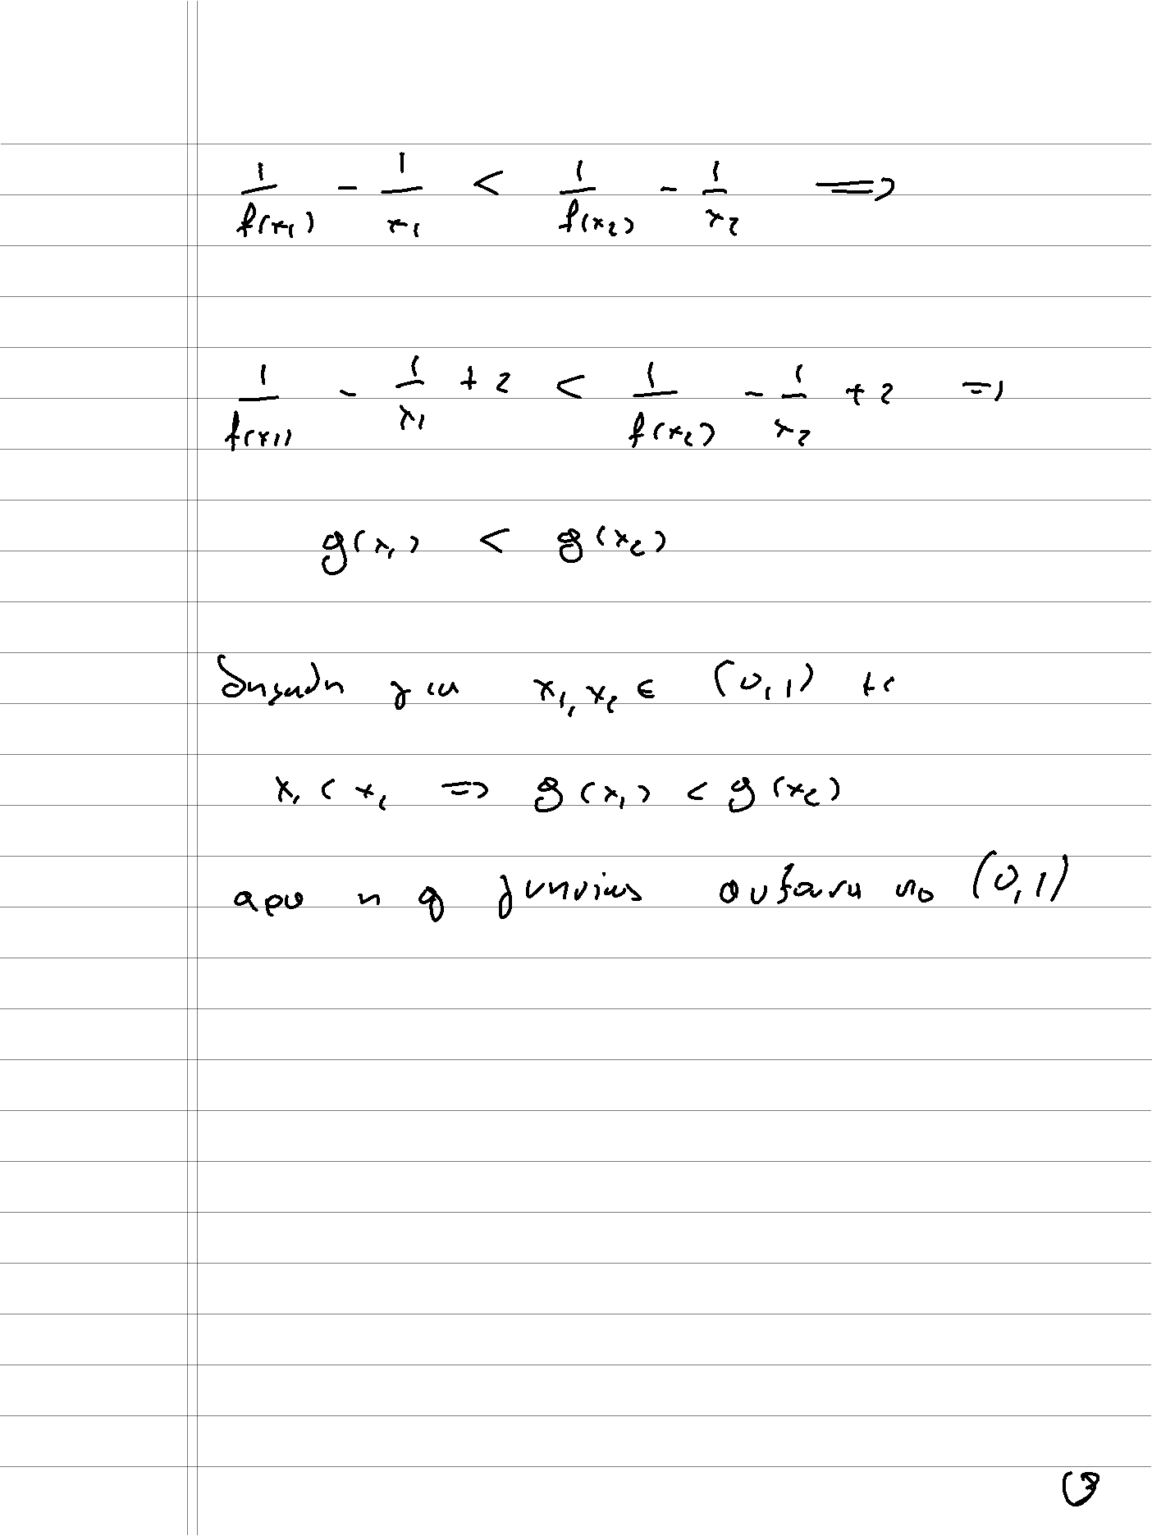 1/f(x₁) - 1/x₁ < 1/f(x₂) - 1/x₂ ⇒
1/f(x₁) - 1/x₁ + 2 < 1/f(x₂) - 1/x₂ + 2 ⇒
g(x₁) < g(x₂)
δηλαδη για x₁, x₂ ∈ (0,1) με
x₁ < x₂ ⇒ g(x₁) < g(x₂)
αρα η g γνησιως αυξουσα στο (0,1)